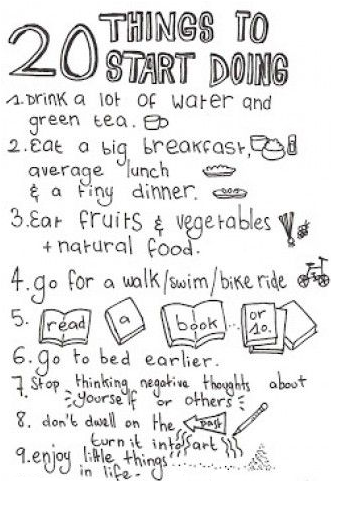 20 THINGS TO
START DOING
1. Drink a lot of water and
green tea.
2. Eat a big breakfast,
average lunch
& a tiny dinner.
3. Eat fruits & vegetables
+ natural food.
4. go for a walk/swim/bike ride
5. read a book... or 10.
6. Go to bed earlier.
7. Stop thinking negative thoughts about
yourself or others
8. don't dwell on the past
turn it into art
9. enjoy little things
in life -